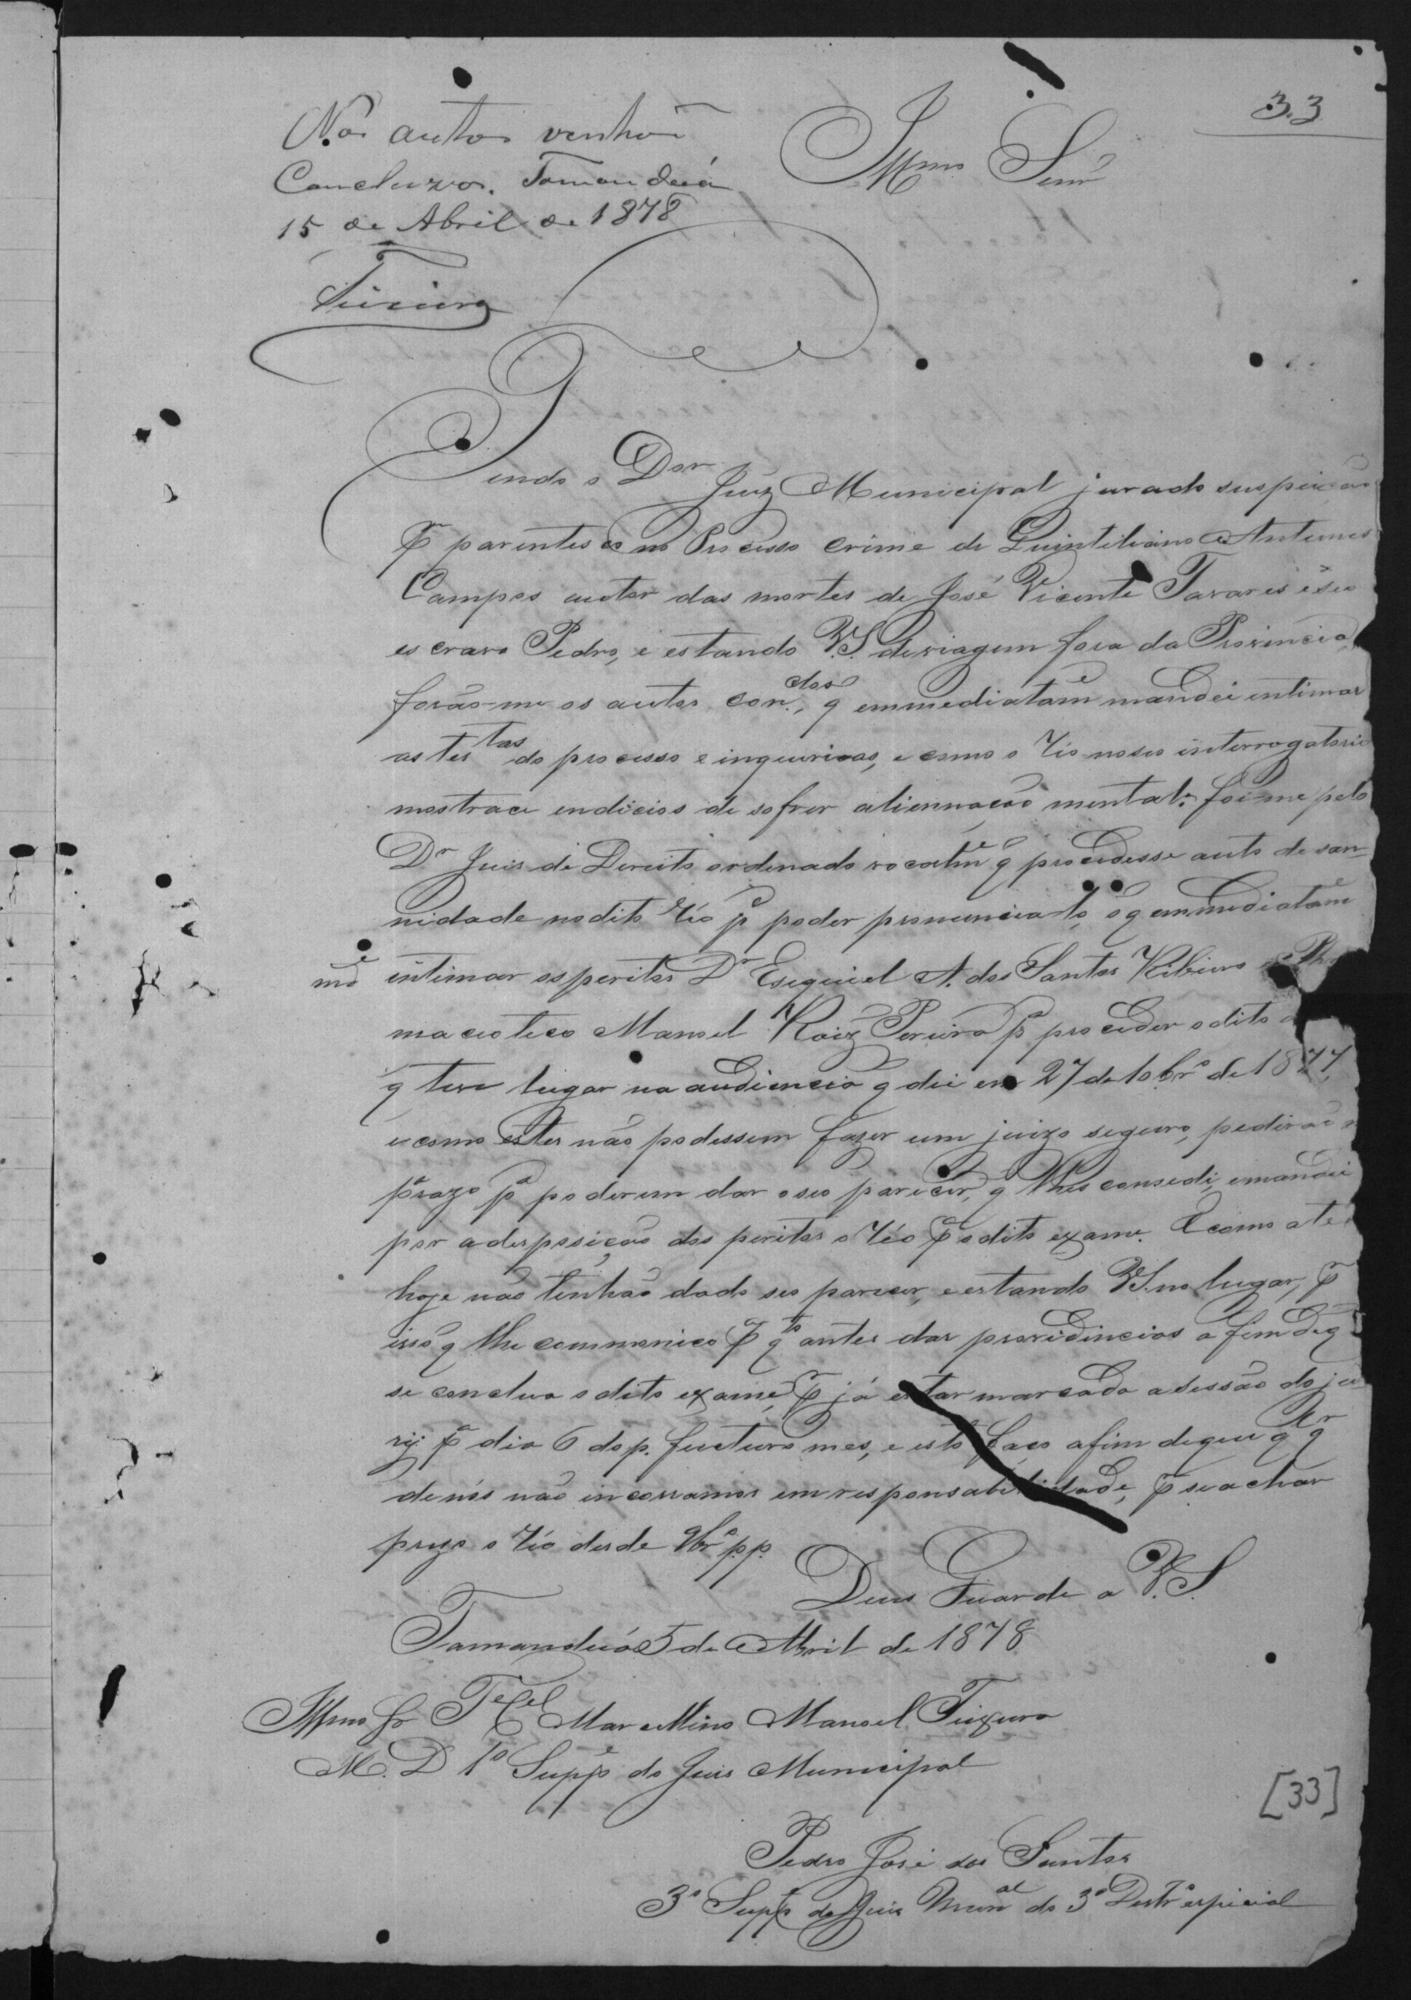 33
Nos autos venhão
Concluzos. Tamanduá
15 de Abril de 1878
Teixeira
Illmo Senr
Tendo o Dor Juiz Municipal jurado suspeição
pr parentesco no Processo crime de Quintiliano Antunes
Campos autor das mortes de José Vicente Tavares e seo
escravo Pedro, e estando V.S. de viagem fora da Provincia,
forão-me os autos con.dos, q emmediatame mandei intimar
as testas do processo e inquerioas, e como o réo no seo interrogatorio
mostrace endicios de sofrer aliennação mental: foi-me pelo
Dr Juis de Direito ordenado vocalme q procedesse auto de san-
nidade no dito réo pa poder pronuncia-lo, o q emmediatame
mde intimar os peritos Dr Esequiel A. dos Santos Ribeiro e o Phar
maceotico Manoel Roiz Pereira pa proceder o dito a
q teve lugar na audiencia q dei em 27 de 10brº de 1877,
e como estes não podessem fazer um juizo seguro, pedirão
prazo pa poderem dar o seo parecer, q lhes consedi, e mandei
por a desposição dos peritos o réo pa o dito exame. E como até
hoje não tenhão dado seo parecer, e estando V.S. no lugar, pr
isso q lhe communico pa qto antes dar providencias a fim de q
se conclua o dito exame, pr já estar marcada a sessão do ju
ry pa dia 6 do p. fucturo mes, e isto faço afim de que qr q
de nós não incorramos em responsabilidade, pr se achar
prezo o réo desde 9brº p.p.
Deus Guarde a V.S.
Tamanduá 5 de Abril de 1878
Illmo Sr Te Cel Marcellino Manoel Teixeira
M. D. 1º Suppe do Juis Municipal
[33]
Pedro José dos Santos
3º Suppe do Juis Munal do 3º Destrº especial